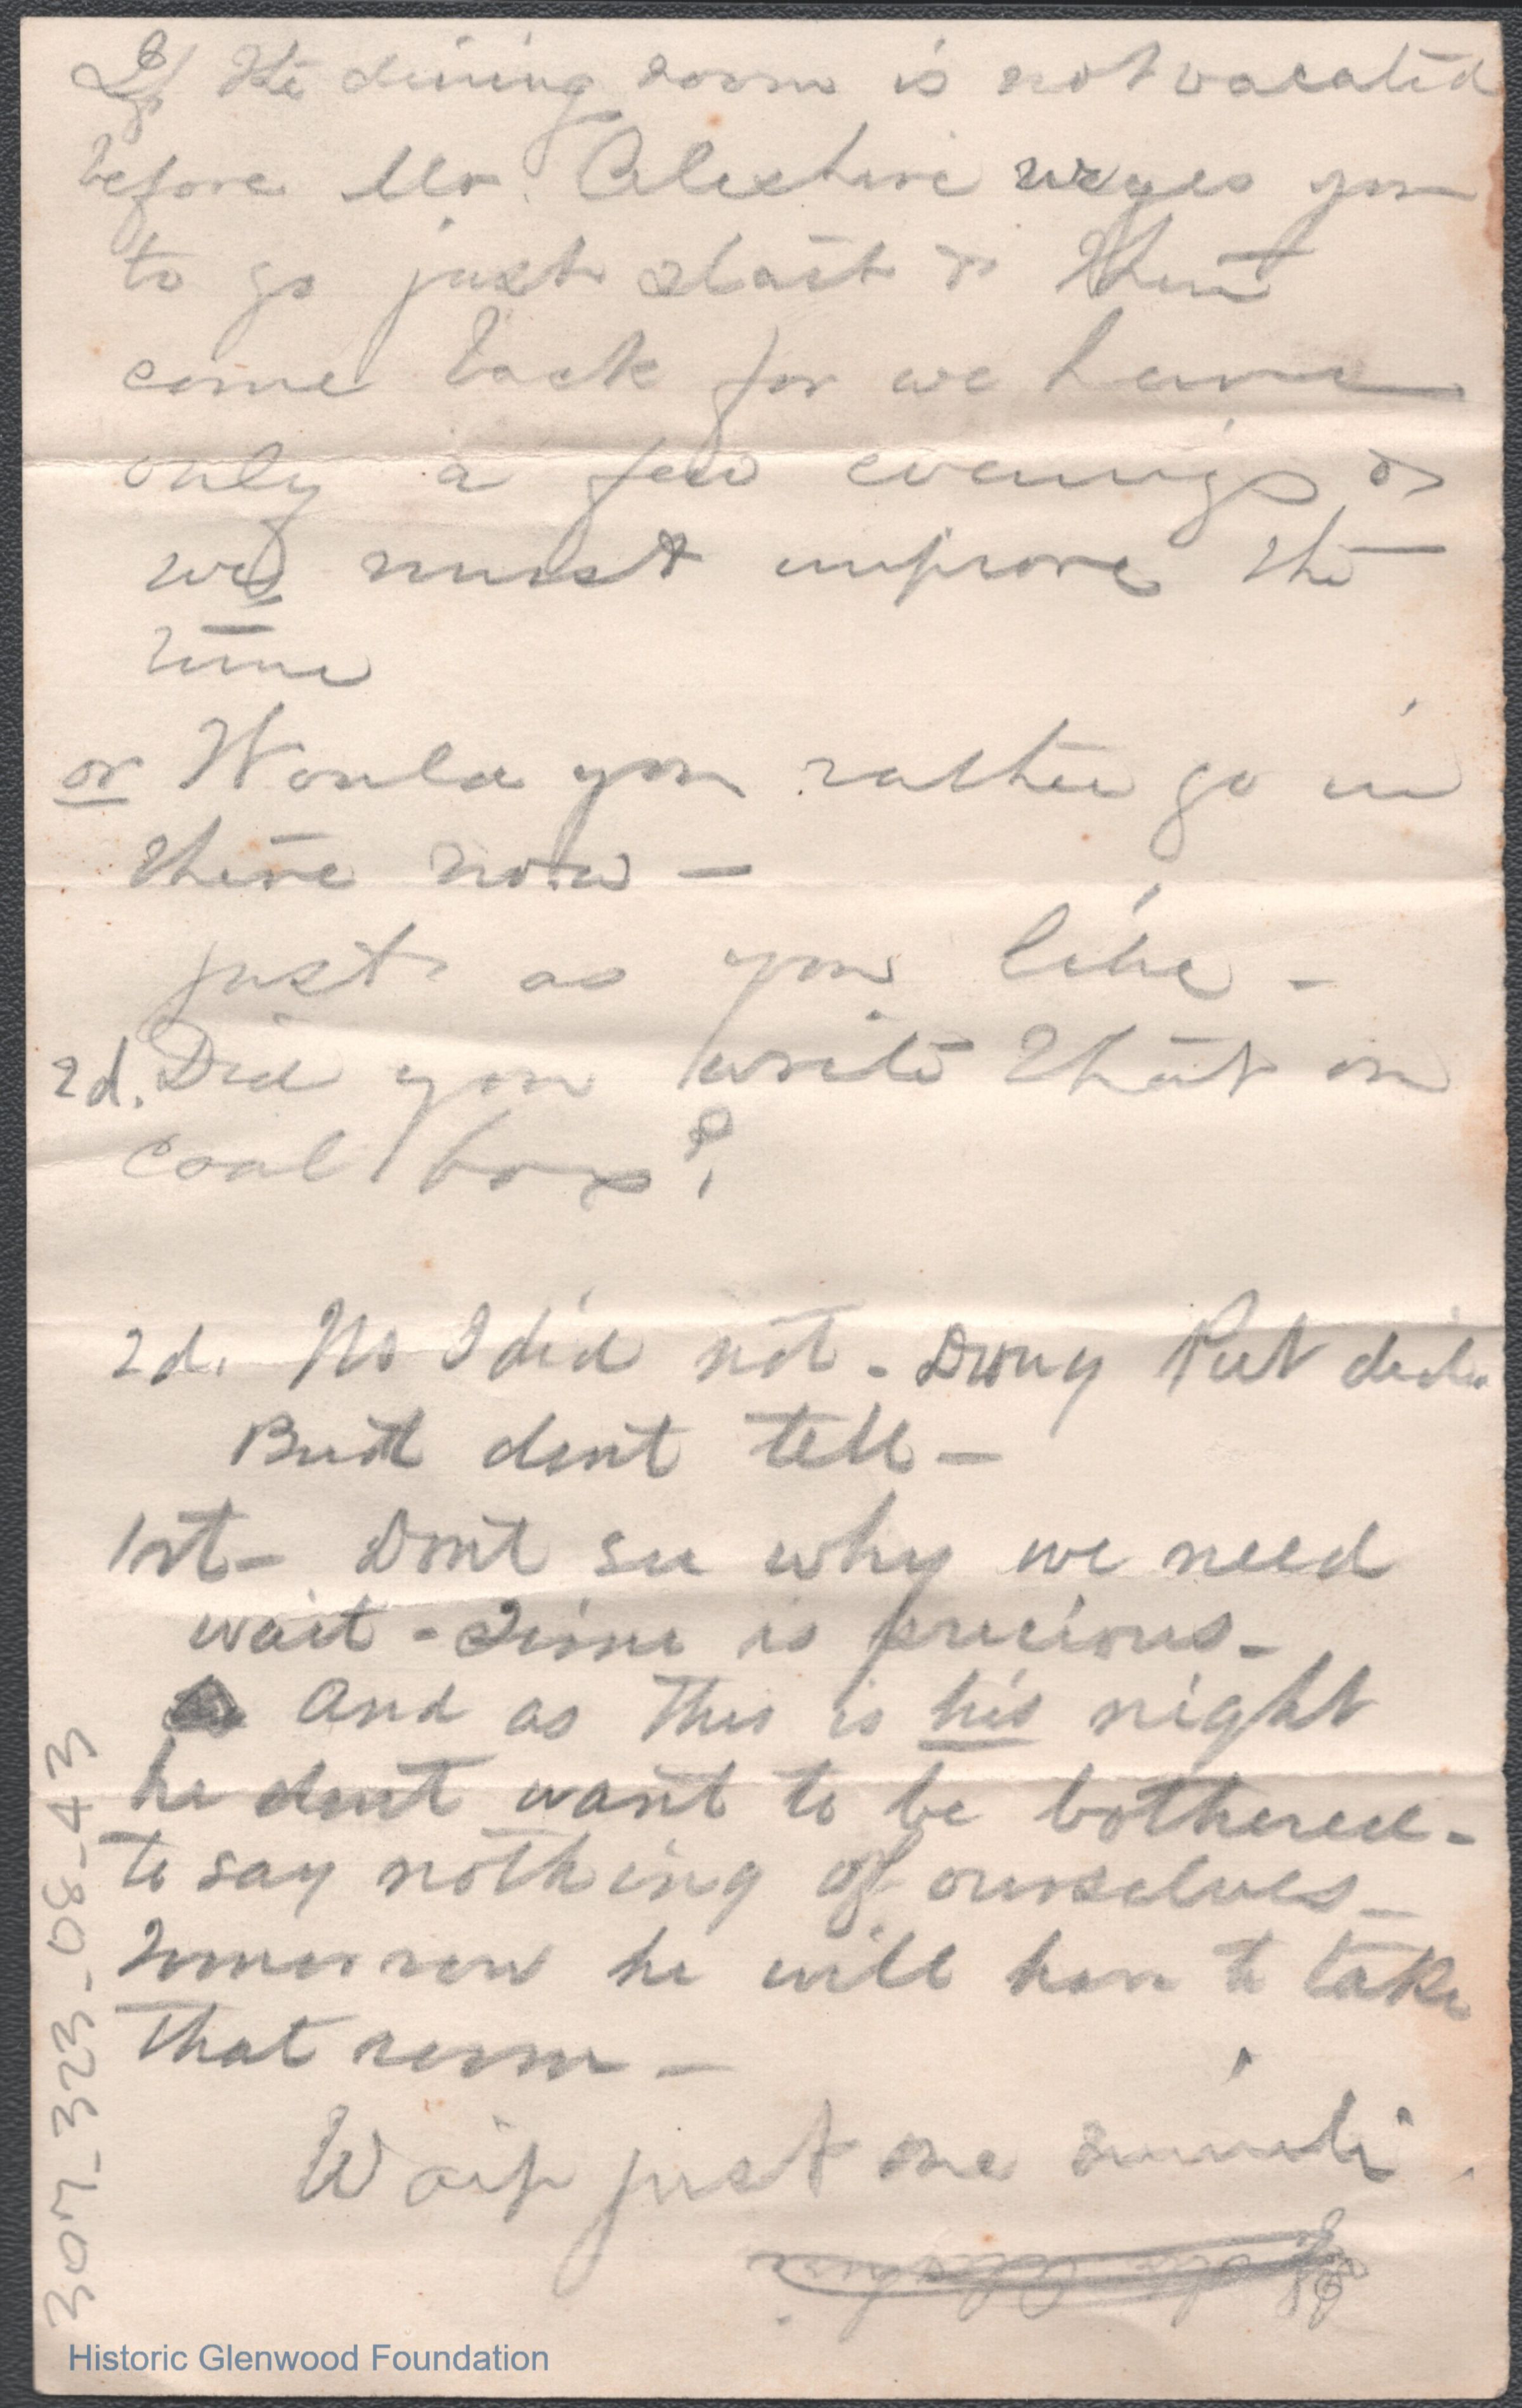 If the dining room is not vacated
before Mr. Aleshire urges you
to go just start & then
come back for we have
only a few evenings &
we must improve the
time
or Would you rather go in
there now –
just as you like –
2d. Did you write that on
coal box?
2d. No I did not – Put
But dont tell –
1st – Dont see why we need
wait – Time is precious –
And as this is his night
he dont want to be bothered –
to say nothing of ourselves –
Tomorrow he will have to take
that room –
Wait just one minute
307_323-08-43
Historic Glenwood Foundation